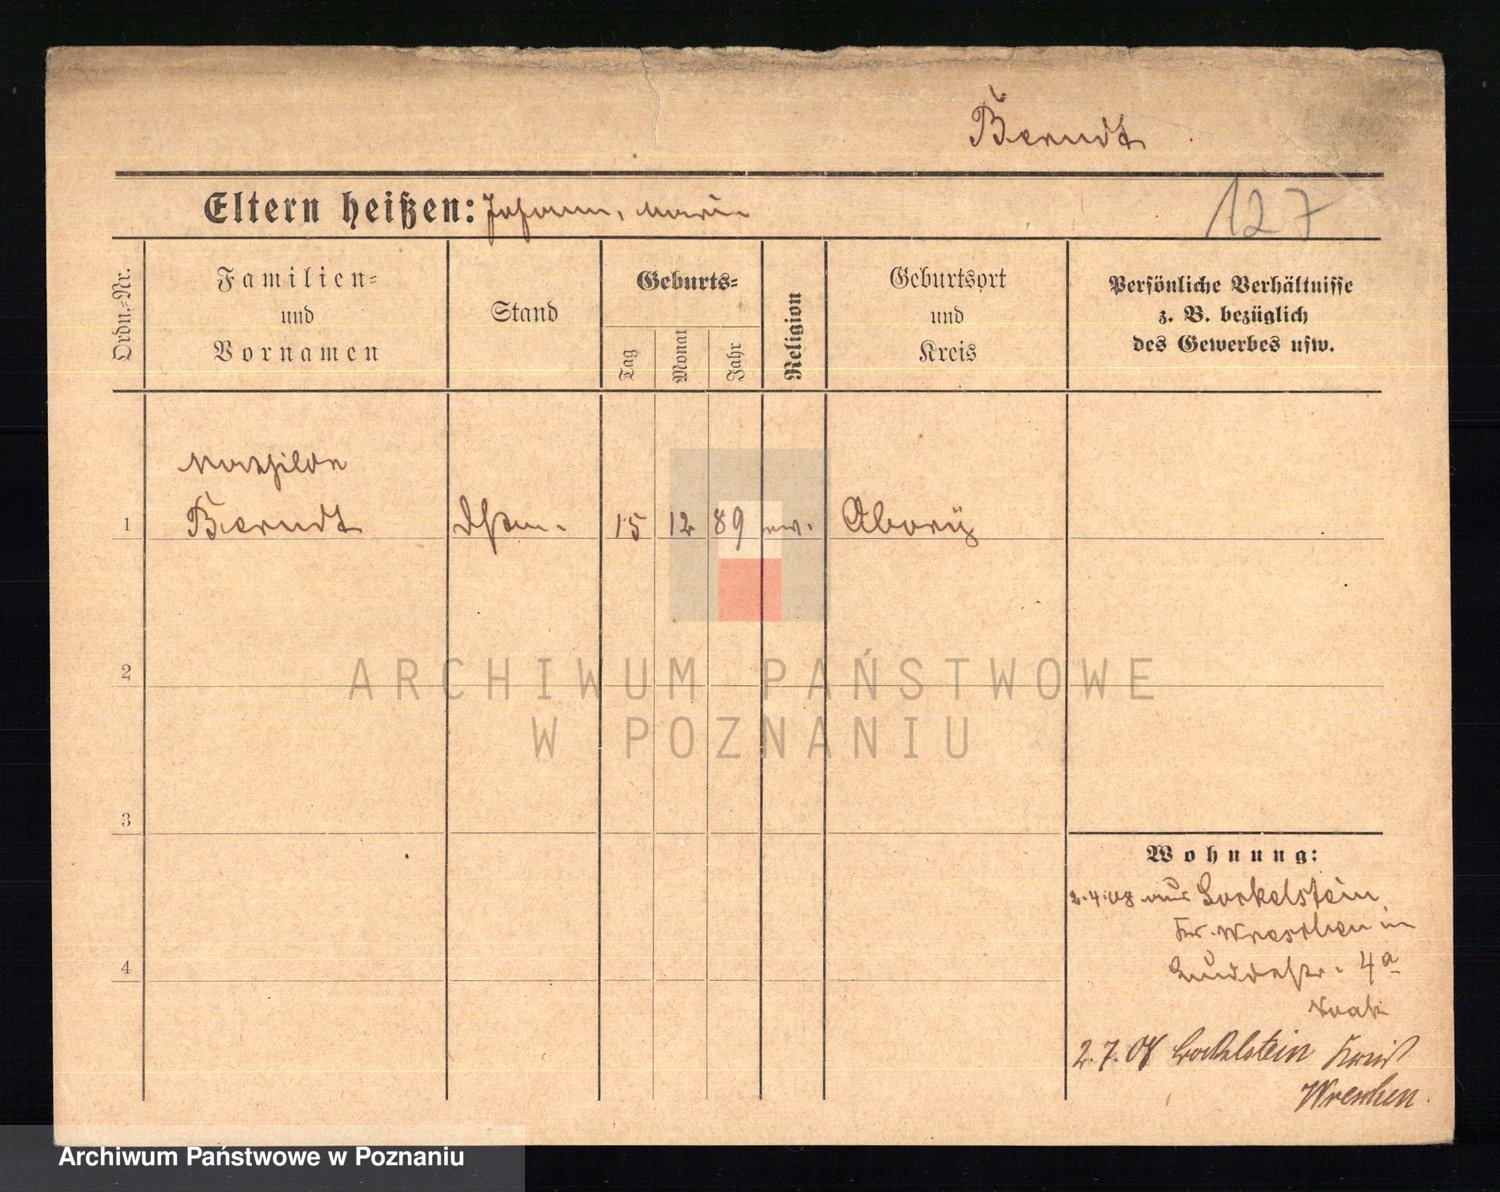 Berndt
Eltern heißen: Johann, Marie
127
Ordn.-Nr.
Familien-
und
Vornamen
Stand
Geburts-
Tag
Monat
Jahr
Religion
Geburtsort
und
Kreis
Persönliche Verhältnisse
z. B. bezüglich
des Gewerbes usw.
Mathilde
1 Berndt 15 12 89 ev.
2
ARCHIWUM PAŃSTWOWE
W POZNANIU
3
4
Wohnung:
2.4.08 aus Sockelstein
Kr. Wreschen in
4a
2.7.08 Sockelstein Kreis
Wreschen
Archiwum Państwowe w Poznaniu